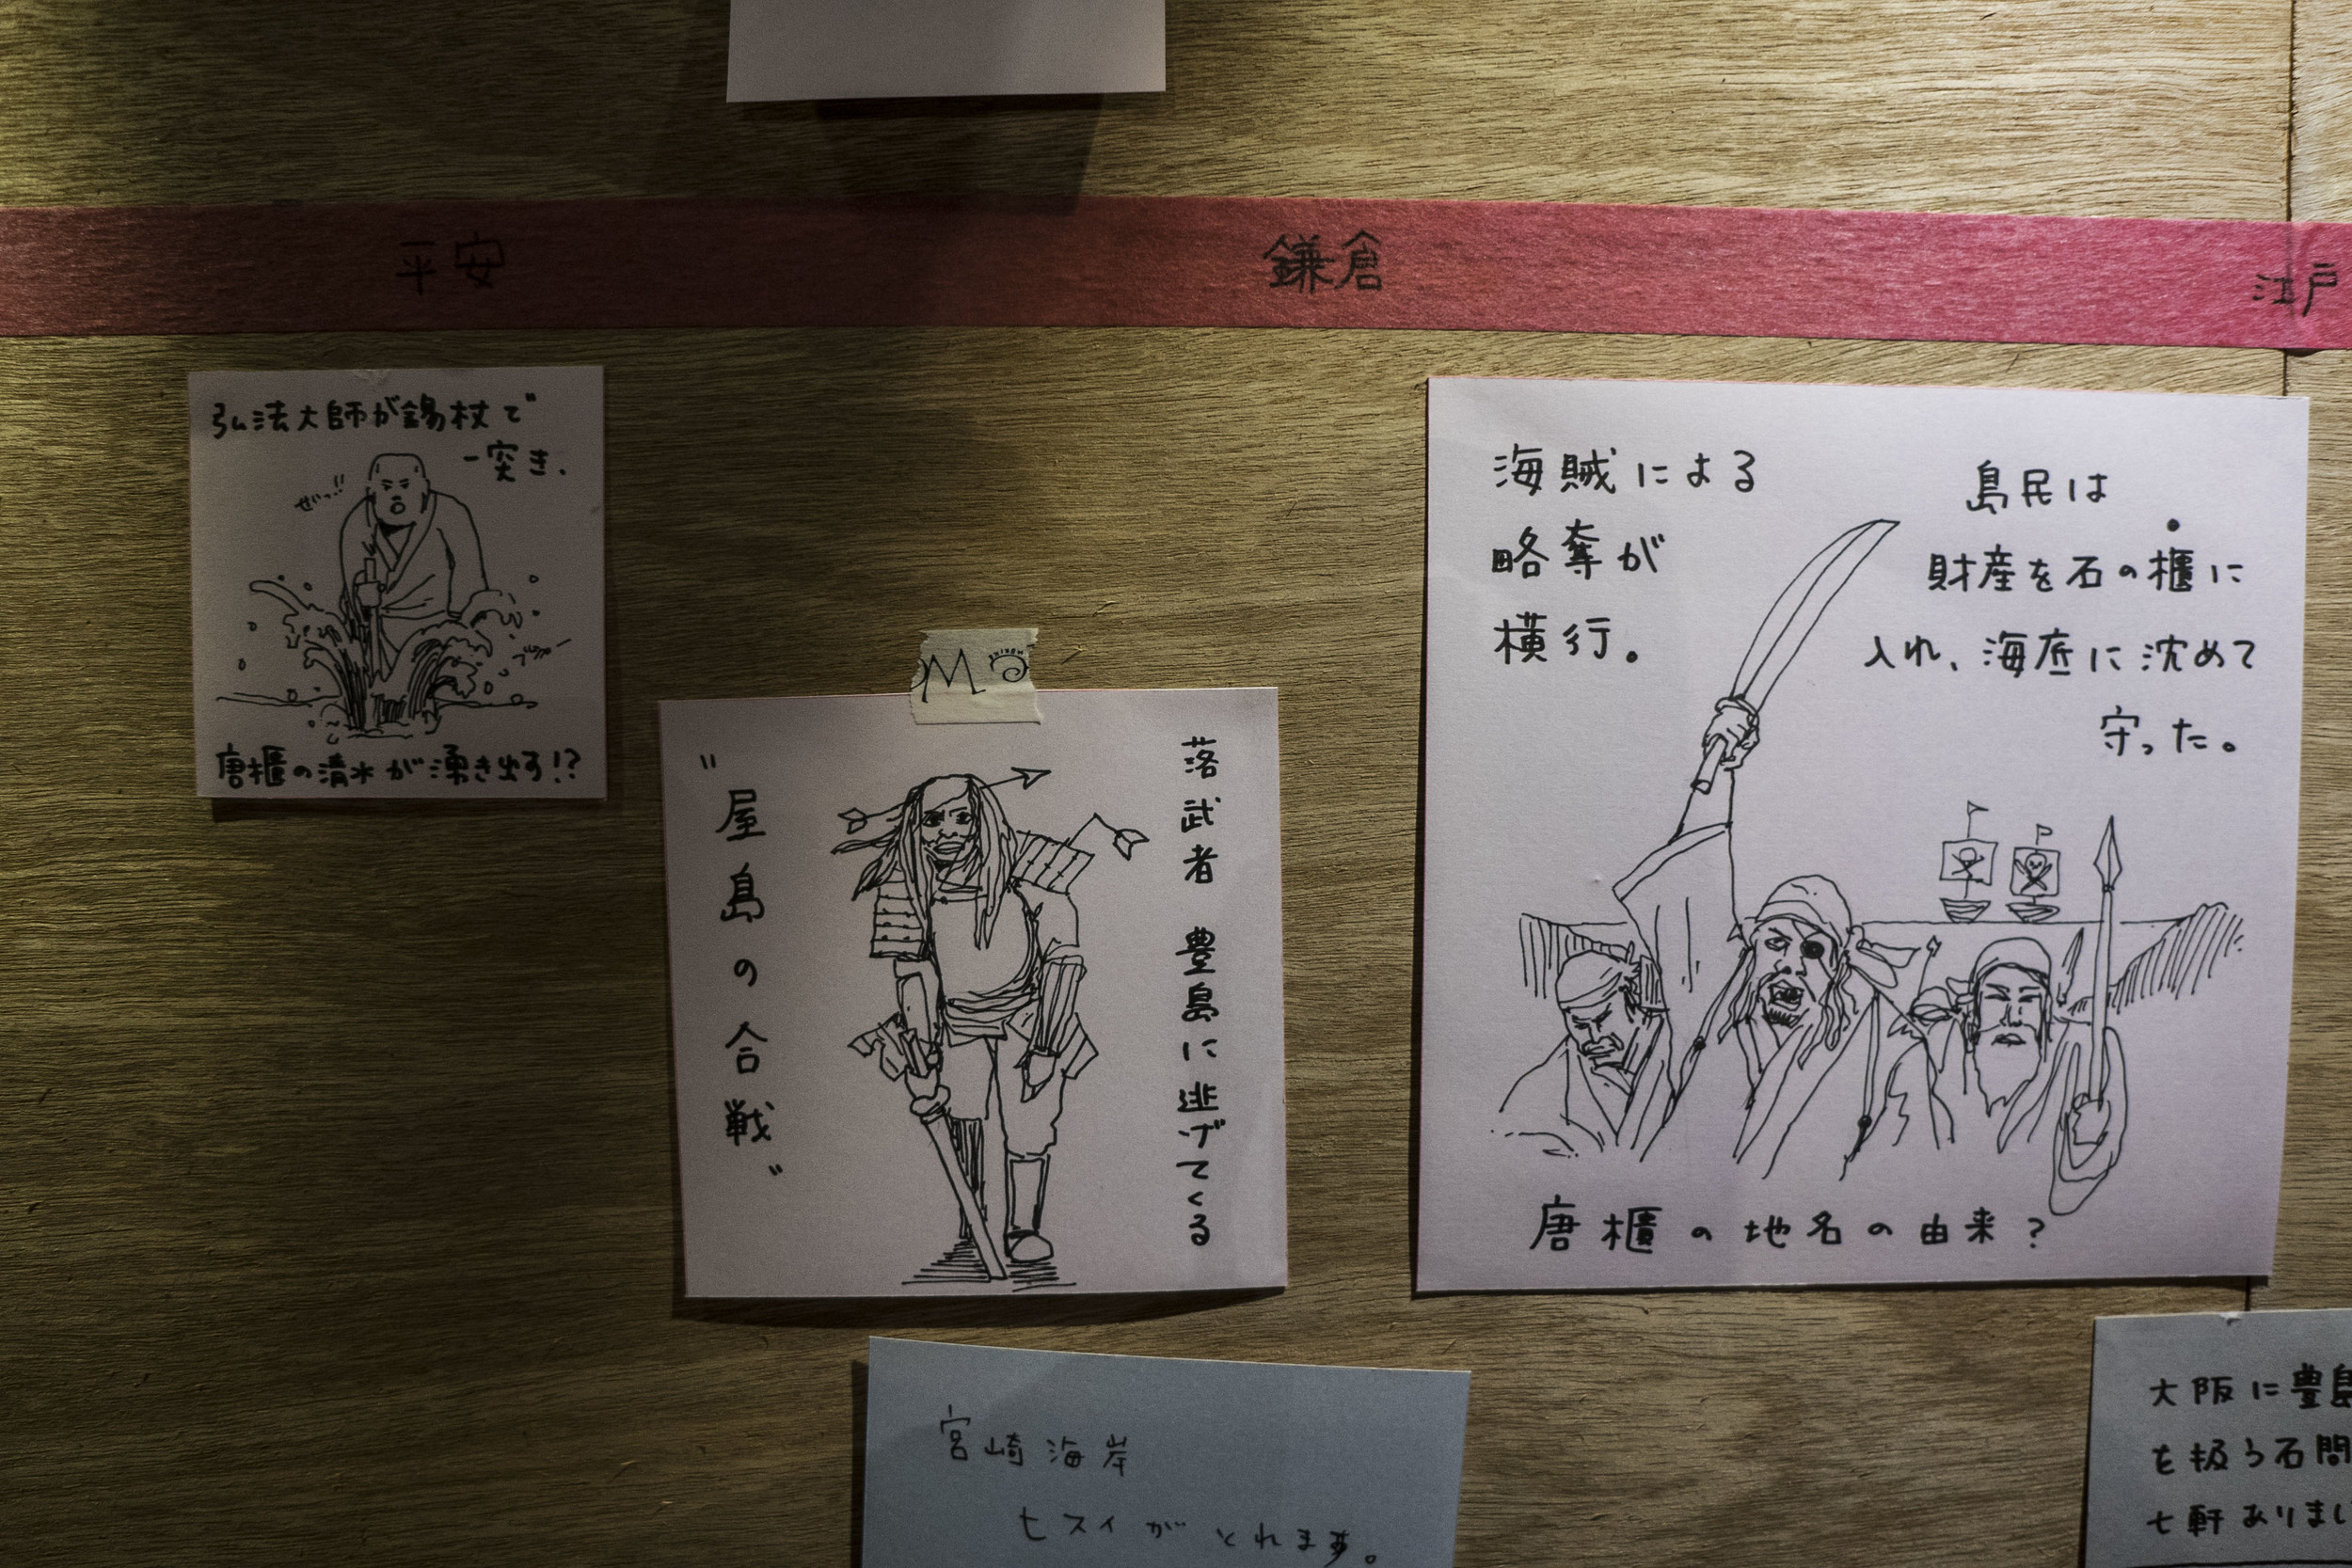 平安
鎌倉
江戸
弘法大師が錫杖で
一突き、
ぜっ!!
唐櫃の清水が湧き出す!?
落武者 豊島に逃げてくる
"屋島の合戦"
海賊による
略奪が
横行。
島民は
財産を石の櫃に
入れ、海底に沈めて
守った。
唐櫃の地名の由来?
宮崎海岸
ヒスイがとれます。
大阪に豊島
を扱う石問
七軒ありまし